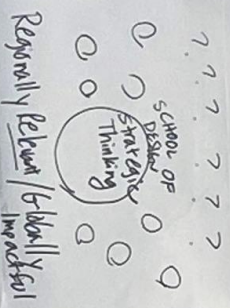 ? ? ? ? ? ? ?
SCHOOL OF
DESIGN
Strategic
Thinking
Regionally Relevant/Globally
Impactful